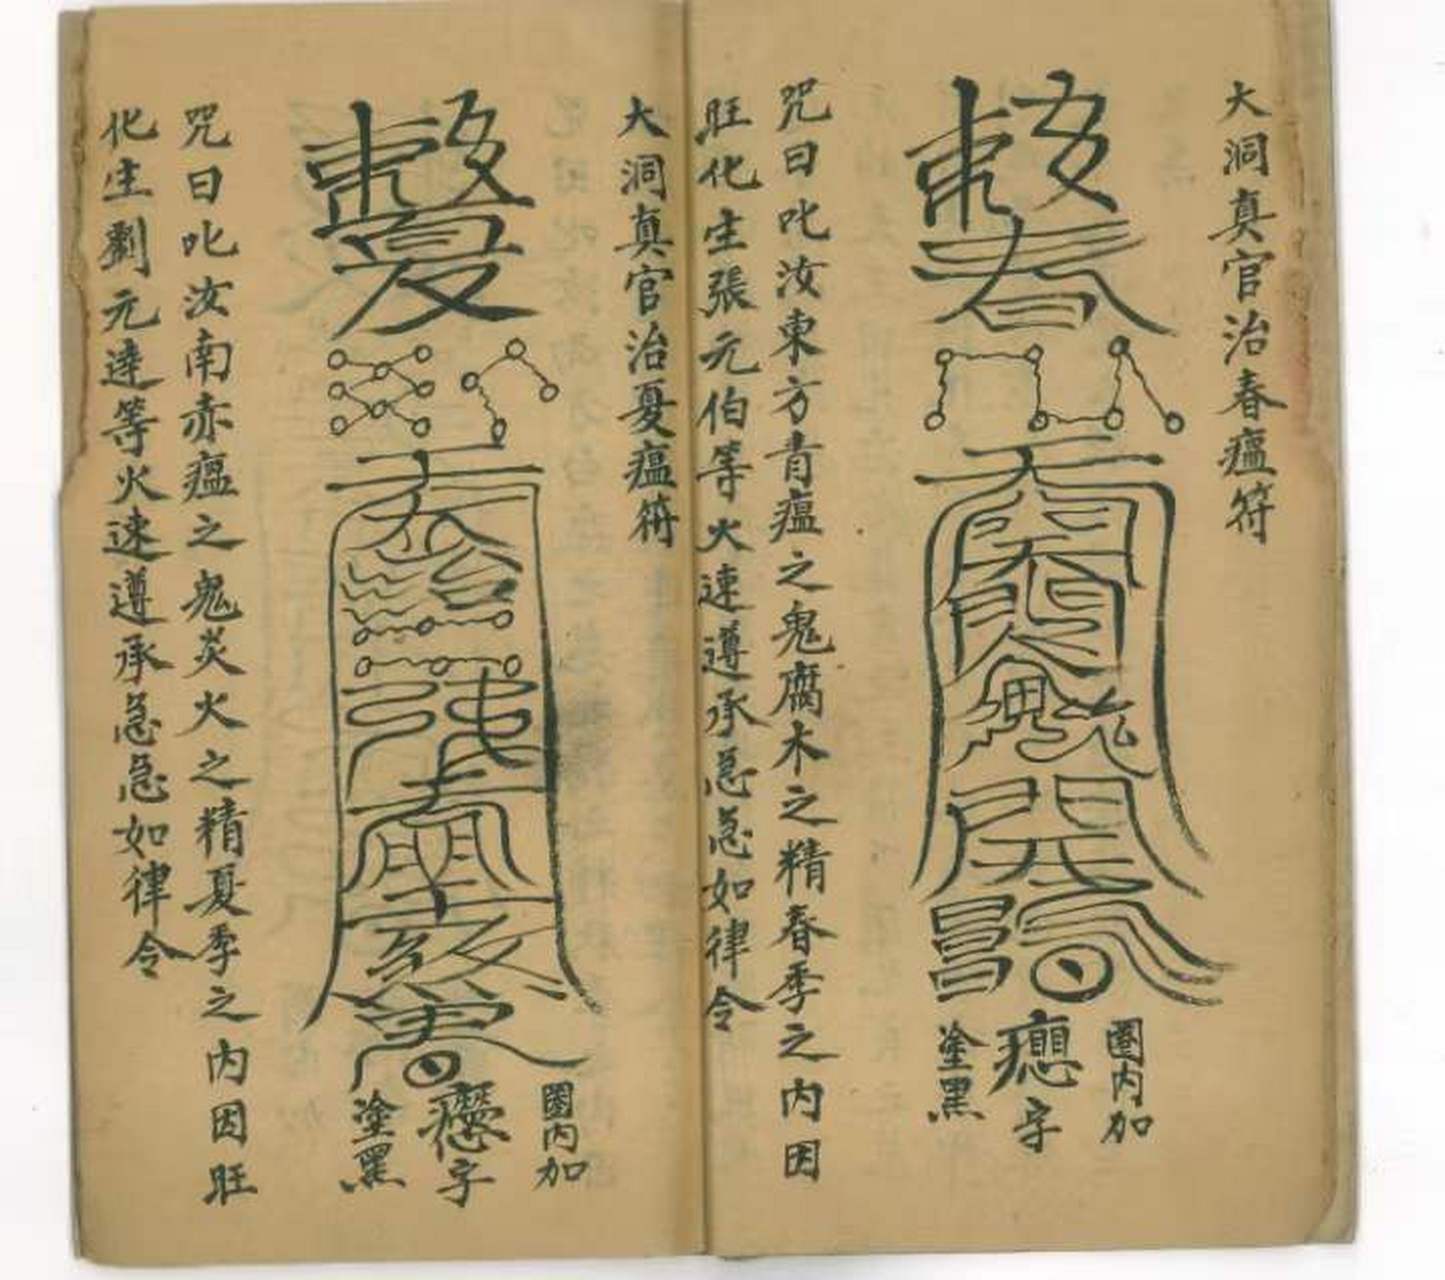 大洞真官治春瘟符
圈内加
字
塗黑
咒曰叱汝東方青瘟之鬼腐木之精春季之内因
旺化生張元伯等火速遵承急急如律令
大洞真官治夏瘟符
圈内加
字
塗黑
咒曰叱汝南赤瘟之鬼炎火之精夏季之内因旺
化生劉元達等火速遵承急急如律令